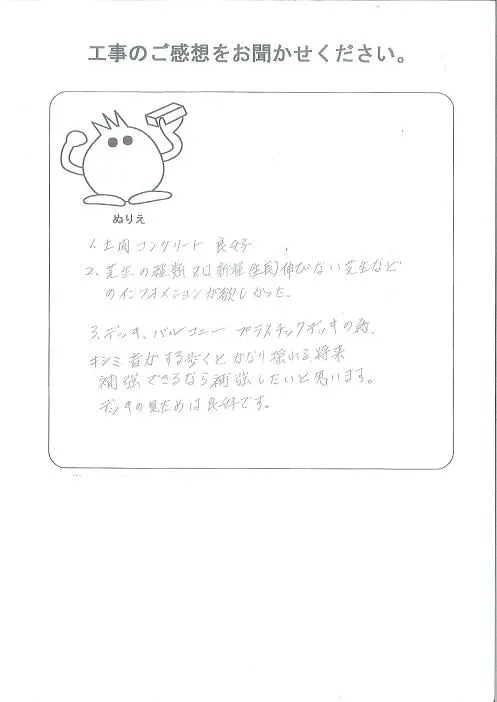 工事のご感想をお聞かせください。
ぬりえ
1. 土間コンクリート 良好
2. 芝生の種類又は新種(生長)伸びない芝生など
のインフォメションが欲しかった。
3. デッキ、バルコニー プラスチックデッキの為、
キシミ音がする歩くとかなり揺れる、将来
補強できるなら補強したいと思います。
デッキの見ためは良好です。